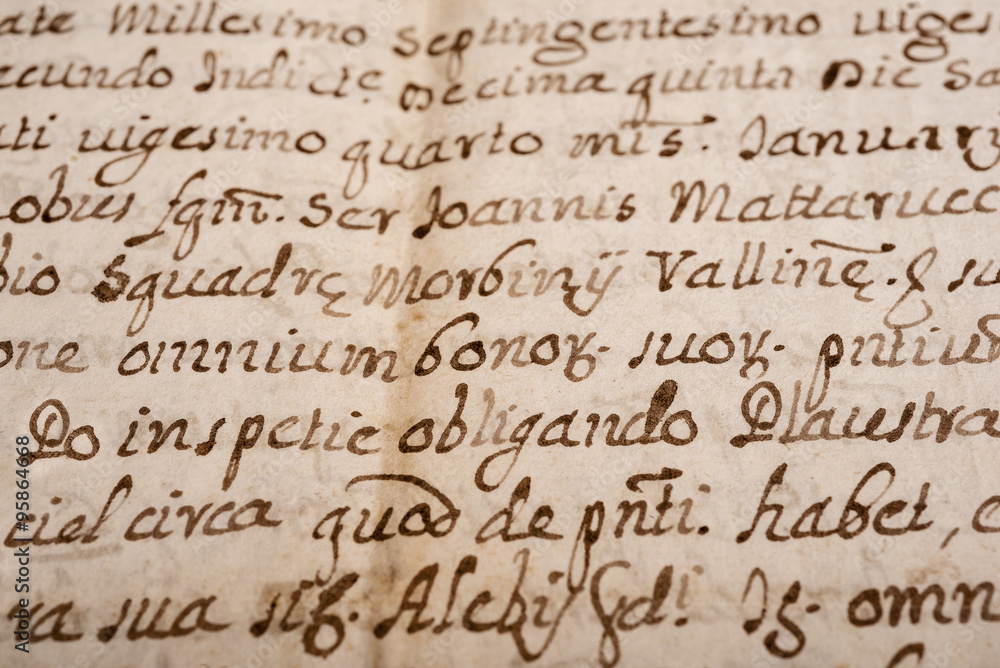 ate Millesimo Septingentesimo uiges
ecundo Indictę Decima quinta Die Sa
ti uigesimo quarto mīs. January
obus Ser Joannis Mattarucc
bio Squadrę Morbinÿ Vallinę̄. & su
one omnium bonoꝝ. suoꝝ. pn̄tiū
Po in spetie obligando Plaustra
ciel circa quod de pn̄ti. habet,
ra sua sig. Is. omn
Adobe Stock | #95864668